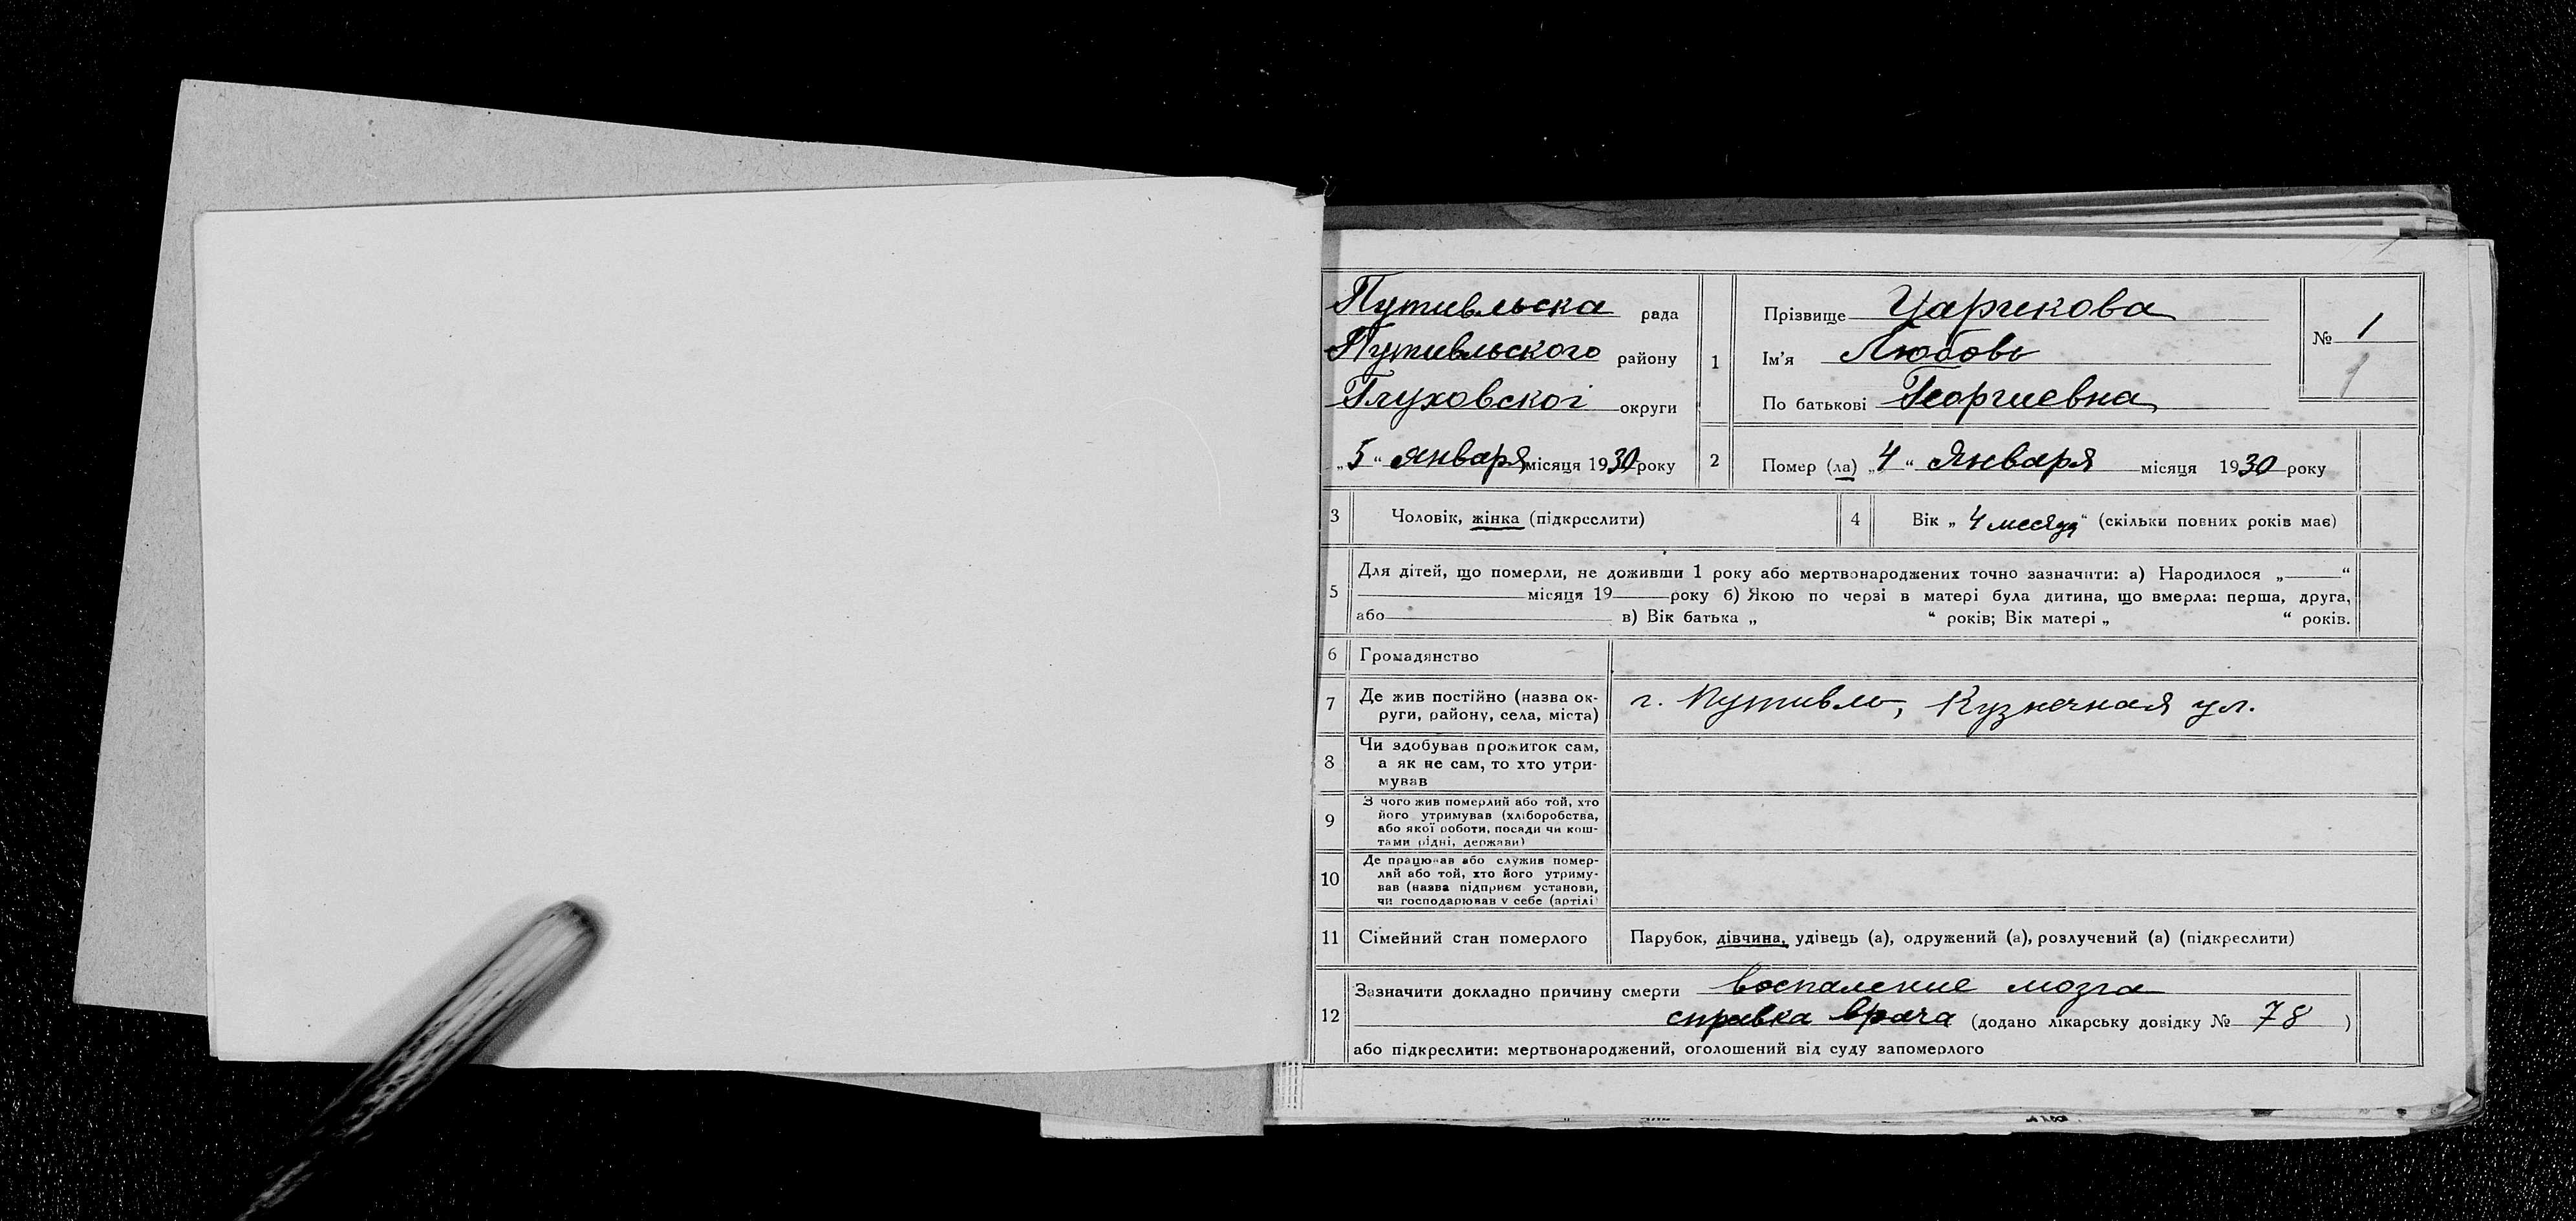 Путивльська рада
Путивльского району
Глуховскої округи
„5“ января місяця 1930 року
1
Прізвище Царикова
Ім'я Любовь
По батькові Георгиевна
№ 1
1
2 Помер (ла) „4“ Января місяця 1930 року
3 Чоловік, жінка (підкреслити)
4 Вік „4 месяца“ (скільки повних років має)
5
Для дітей, що померли, не доживши 1 року або мертвонароджених точно зазначити: а) Народилося „ “
місяця 19 року б) Якою по черзі в матері була дитина, що вмерла: перша, друга,
або в) Вік батька „ “ років; Вік матері „ “ років.
6 Громадянство
7 Де жив постійно (назва ок-
руги, району, села, міста)
г. Путивль, Кузнечная ул.
8
Чи здобував прожиток сам,
а як не сам, то хто утри-
мував
9
З чого жив померлий або той, хто
його утримував (хліборобства,
або якої роботи, посади чи кош-
тами рідні, держави)
10
Де працював або служив помер-
лий або той, хто його утриму-
вав (назва підприєм установи,
чи господарював у себе (артілі)
11 Сімейний стан померлого
Парубок, дівчина, удівець (а), одружений (а), розлучений (а) (підкреслити)
12
Зазначити докладно причину смерти воспаление мозга
справка врача (додано лікарську довідку № 78 )
або підкреслити: мертвонароджений, оголошений від суду запомерлого